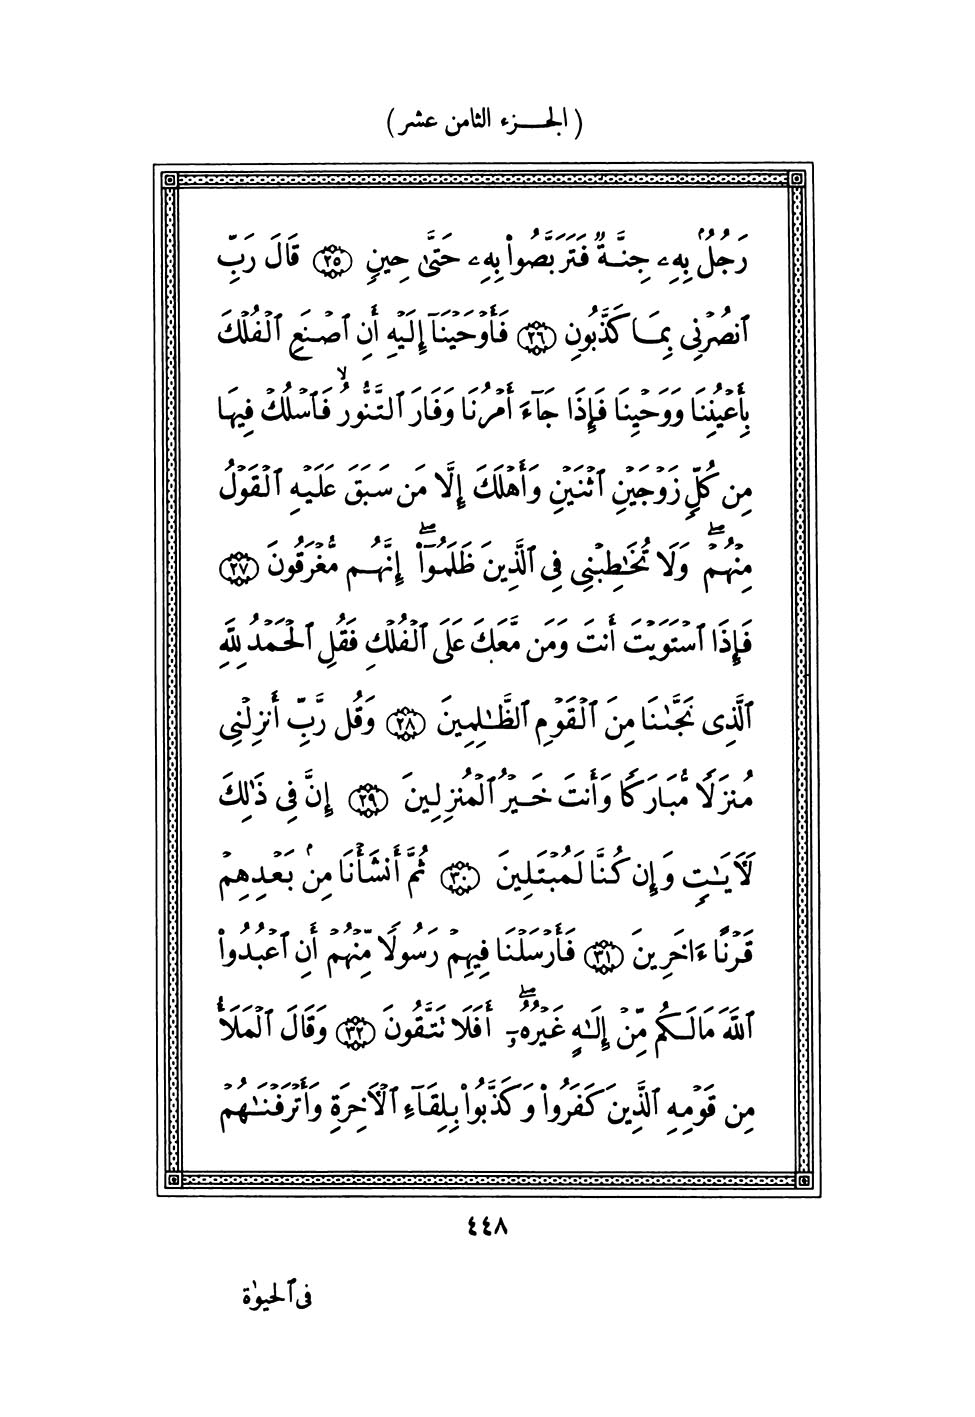 ( الجـــزء الثامن عشر )
رَجُلٌۢ بِهِۦ جِنَّةٌۭ فَتَرَبَّصُوا۟ بِهِۦ حَتَّىٰ حِينٍۢ ﴿٢٥﴾ قَالَ رَبِّ
ٱنصُرْنِى بِمَا كَذَّبُونِ ﴿٢٦﴾ فَأَوْحَيْنَآ إِلَيْهِ أَنِ ٱصْنَعِ ٱلْفُلْكَ
بِأَعْيُنِنَا وَوَحْيِنَا فَإِذَا جَآءَ أَمْرُنَا وَفَارَ ٱلتَّنُّورُ ۙ فَٱسْلُكْ فِيهَا
مِن كُلٍّۢ زَوْجَيْنِ ٱثْنَيْنِ وَأَهْلَكَ إِلَّا مَن سَبَقَ عَلَيْهِ ٱلْقَوْلُ
مِنْهُمْ ۖ وَلَا تُخَـٰطِبْنِى فِى ٱلَّذِينَ ظَلَمُوٓا۟ ۖ إِنَّهُم مُّغْرَقُونَ ﴿٢٧﴾
فَإِذَا ٱسْتَوَيْتَ أَنتَ وَمَن مَّعَكَ عَلَى ٱلْفُلْكِ فَقُلِ ٱلْحَمْدُ لِلَّهِ
ٱلَّذِى نَجَّىٰنَا مِنَ ٱلْقَوْمِ ٱلظَّـٰلِمِينَ ﴿٢٨﴾ وَقُل رَّبِّ أَنزِلْنِى
مُنزَلًۭا مُّبَارَكًۭا وَأَنتَ خَيْرُ ٱلْمُنزِلِينَ ﴿٢٩﴾ إِنَّ فِى ذَٰلِكَ
لَـَٔايَـٰتٍۢ وَإِن كُنَّا لَمُبْتَلِينَ ﴿٣٠﴾ ثُمَّ أَنشَأْنَا مِنۢ بَعْدِهِمْ
قَرْنًا ءَاخَرِينَ ﴿٣١﴾ فَأَرْسَلْنَا فِيهِمْ رَسُولًۭا مِّنْهُمْ أَنِ ٱعْبُدُوا۟
ٱللَّهَ مَا لَكُم مِّنْ إِلَـٰهٍ غَيْرُهُۥٓ ۖ أَفَلَا تَتَّقُونَ ﴿٣٢﴾ وَقَالَ ٱلْمَلَأُ
مِن قَوْمِهِ ٱلَّذِينَ كَفَرُوا۟ وَكَذَّبُوا۟ بِلِقَآءِ ٱلْـَٔاخِرَةِ وَأَتْرَفْنَـٰهُمْ
٤٤٨
فِى ٱلْحَيَوٰةِ